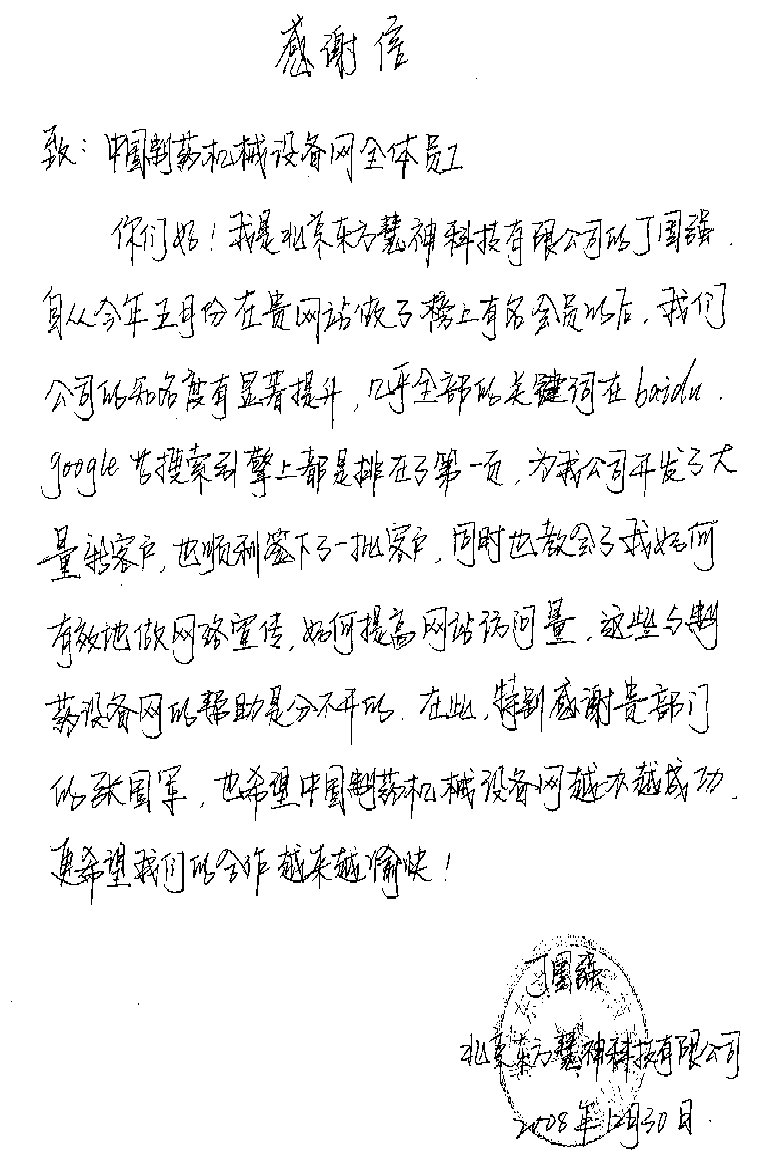 感谢信
致：中国制药机械设备网全体员工
你们好！我是北京东方慧神科技有限公司的丁国强．
自从今年五月份在贵网站做了榜上有名会员以后，我们
公司的知名度有显著提升，几乎全部的关键词在baidu．
google等搜索引擎上都是排在了第一页，为我公司开发了大
量新客户，也顺利签下了一批客户，同时也教会了我如何
有效地做网络宣传，如何提高网站访问量，这些与制
药设备网的帮助是分不开的．在此，特别感谢贵部门
的张国军，也希望中国制药机械设备网越来越成功．
更希望我们的合作越来越愉快！
丁国强
北京东方慧神科技有限公司
2008年12月30日．